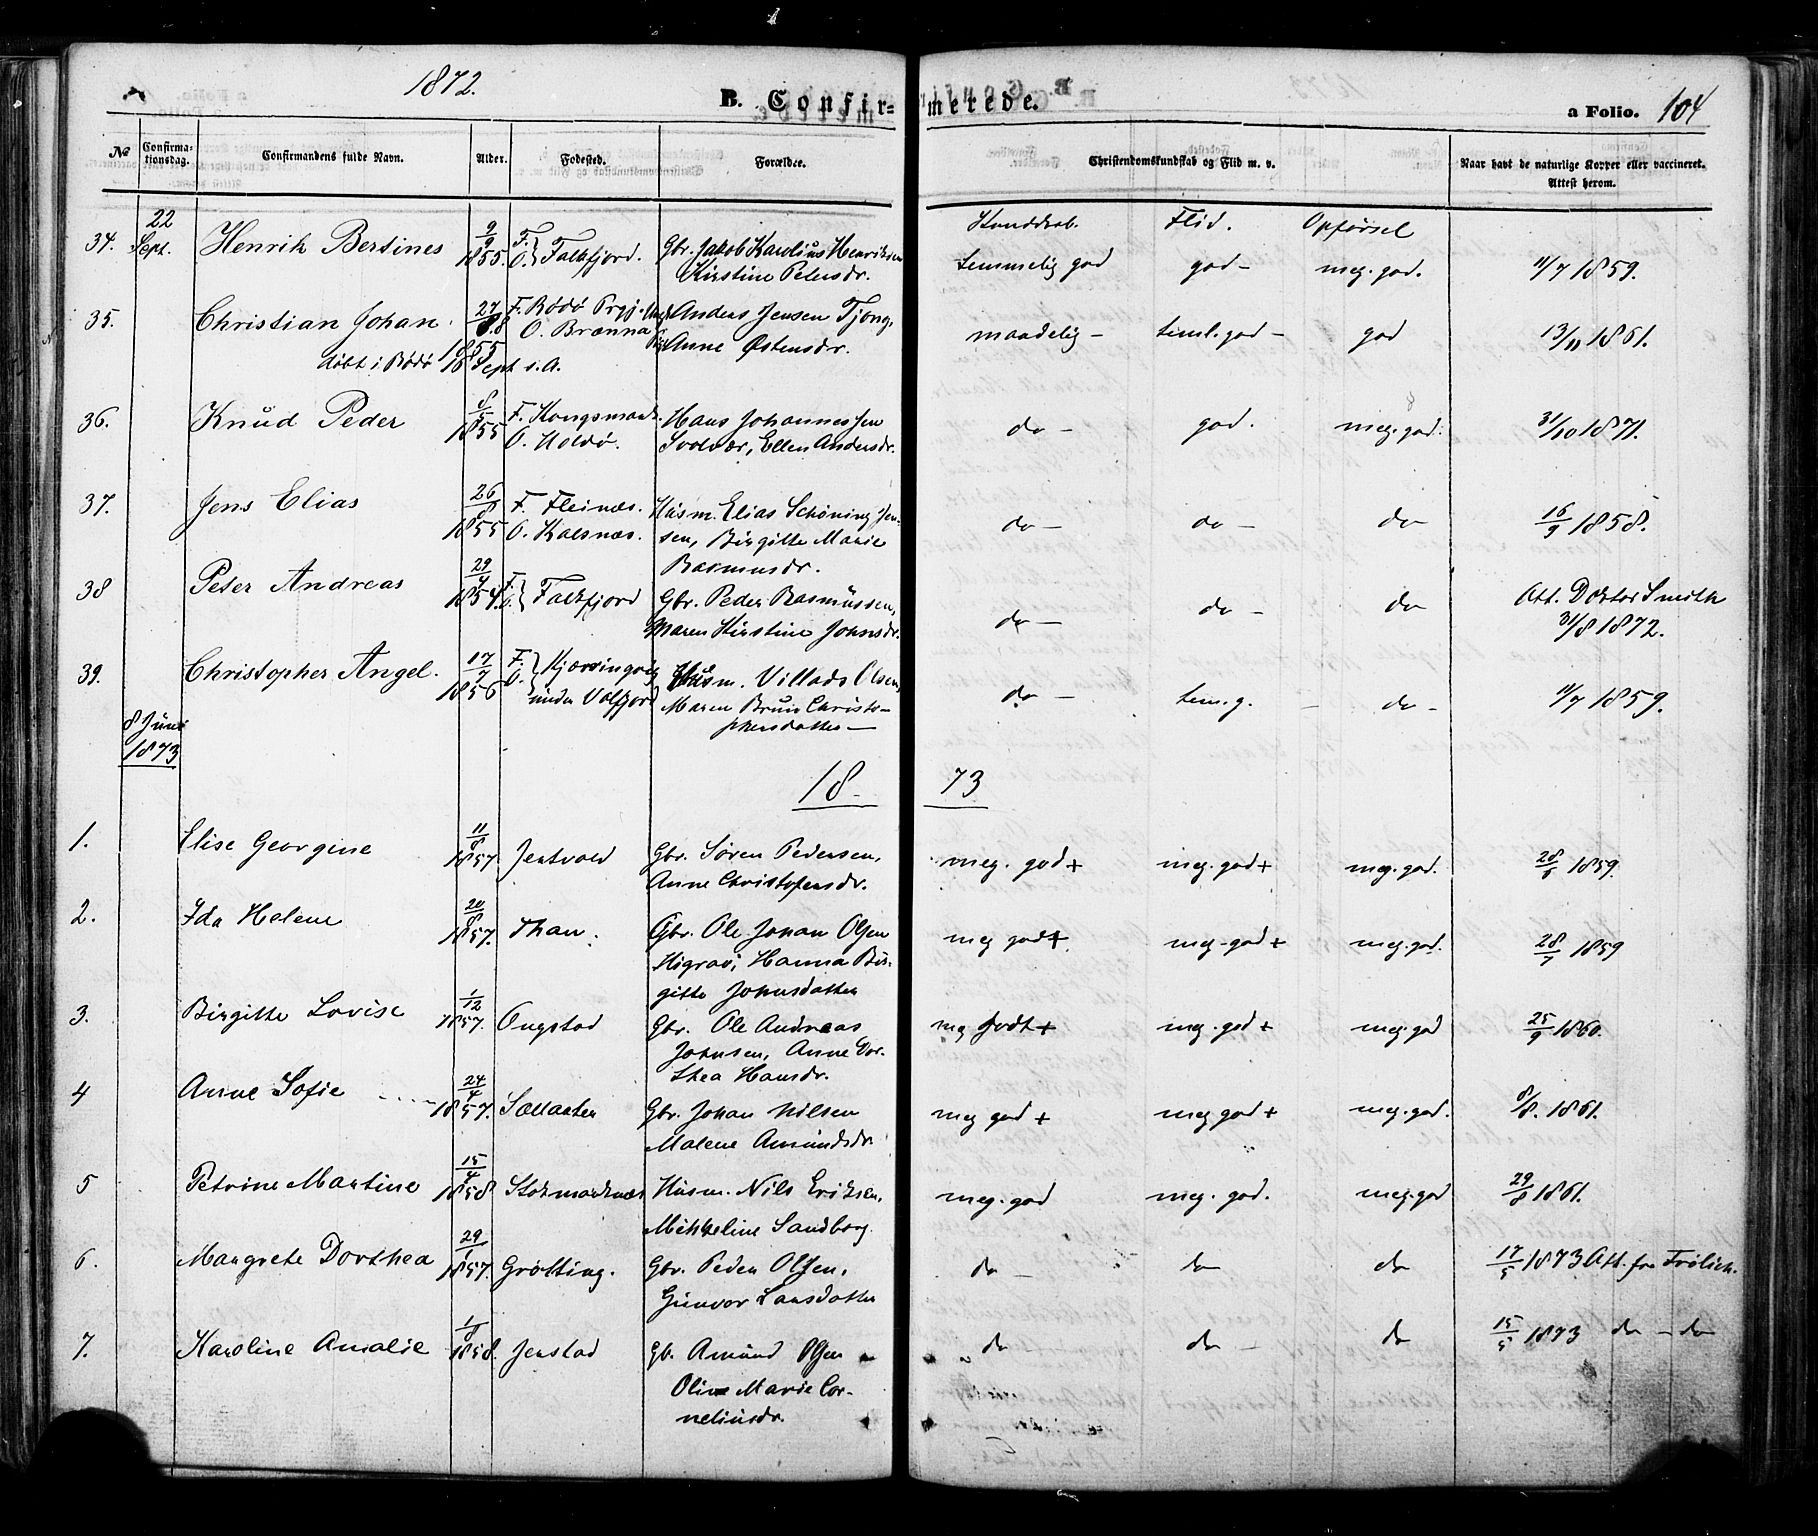 1872.
B. Confirmerede.
a Folio. 104
No Confirmationsdag. Confirmandens fulde Navn. Alder. Fødested. Forældre. Christendomskundskab og Flid m. v. Naar havt de naturlige Kopper eller vaccineret. Attest herom.
Kundskab. Flid. Opførsel
34. 22 Sept. Henrik Bertines 9/9 1855. F. O. Falkfjord. Gbr. Jakob Karelius Henriksen
Kirstine Petersdr. temmelig god god - meg. god. 11/7 1859.
35. Christian Johan. 27/8 1855 F. Rødø Prgj. Anders Jensen Tjong,
O. Brænna Anne Østensdr. maadelig - teml. god - god 13/11 1861.
døbt i Rødø 16 Sept s. A.
36. Knud Peder 1855 F. Kongsmark Hans Johannessen
O. Holdø. Svolvær, Ellen Andersdr. do - god. meg. god. 31/10 1871.
37. Jens Elias 26/8 1855 F. Fleinæs. Husm. Elias Schøning Jen-
O. Kalsnæs. sen, Birgitte Marie
Rasmusdr. do - do - do 16/9 1858.
38 Peter Andreas 29/4 1854. F. O. Falkfjord Gbr. Peder Rasmussen,
Maren Kirstine Johnsdr. do - do - do Att. Doktor Smith
31/8 1872.
39. Christopher Angel. 17/7 1856 F. O. Kjørvingvig Husm. Villads Olsen,
under Valfjord Maren Bruun Christo-
phersdatter - do - tem. g. - do - 11/7 1859.
8 Juni
1873
1873
1. Elise Georgine 11/8 1857. Jentvold Gbr. Søren Pedersen,
Anne Christofersdr. meg. god + meg. god + meg. god. 28/5 1859.
2. Ida Helene 20/8 1857. Than. Gbr. Ole Johan Olsen
Higrav, Hanna Bir-
gitte Johnsdatter meg god + meg. god + meg. god. 28/5 1859
3. Birgitte Lovise 1/12 1857. Ongstad Gbr. Ole Andreas
Johnsen, Anne Dor-
thea Hansdr. meg godt + meg. god + meg. god 25/9 1860.
4 Anne Sofie 24/4 1857. Sællæter Gbr. Johan Nilsen
Malene Amundsdr. meg god + meg god + meg. god. 8/8. 1861.
5 Petrine Martine 15/4 1858 Stokmarknæs Husm. Nils Eriksen,
Mikkeline Sandborg. meg. god meg. god. meg. god 29/8 1861.
6. Margrete Dorthea 29/1 1857. Grøtting. Gbr. Peder Olsen,
Gunvor Larsdatter do - do do 17/5 1873 Att. fra Frølich.
7. Karoline Amalie 1/8 1858. Jenstad Gb. Amund Olsen
Oline Marie Cor-
neliusdr. do do - do 15/5 1873 do - do